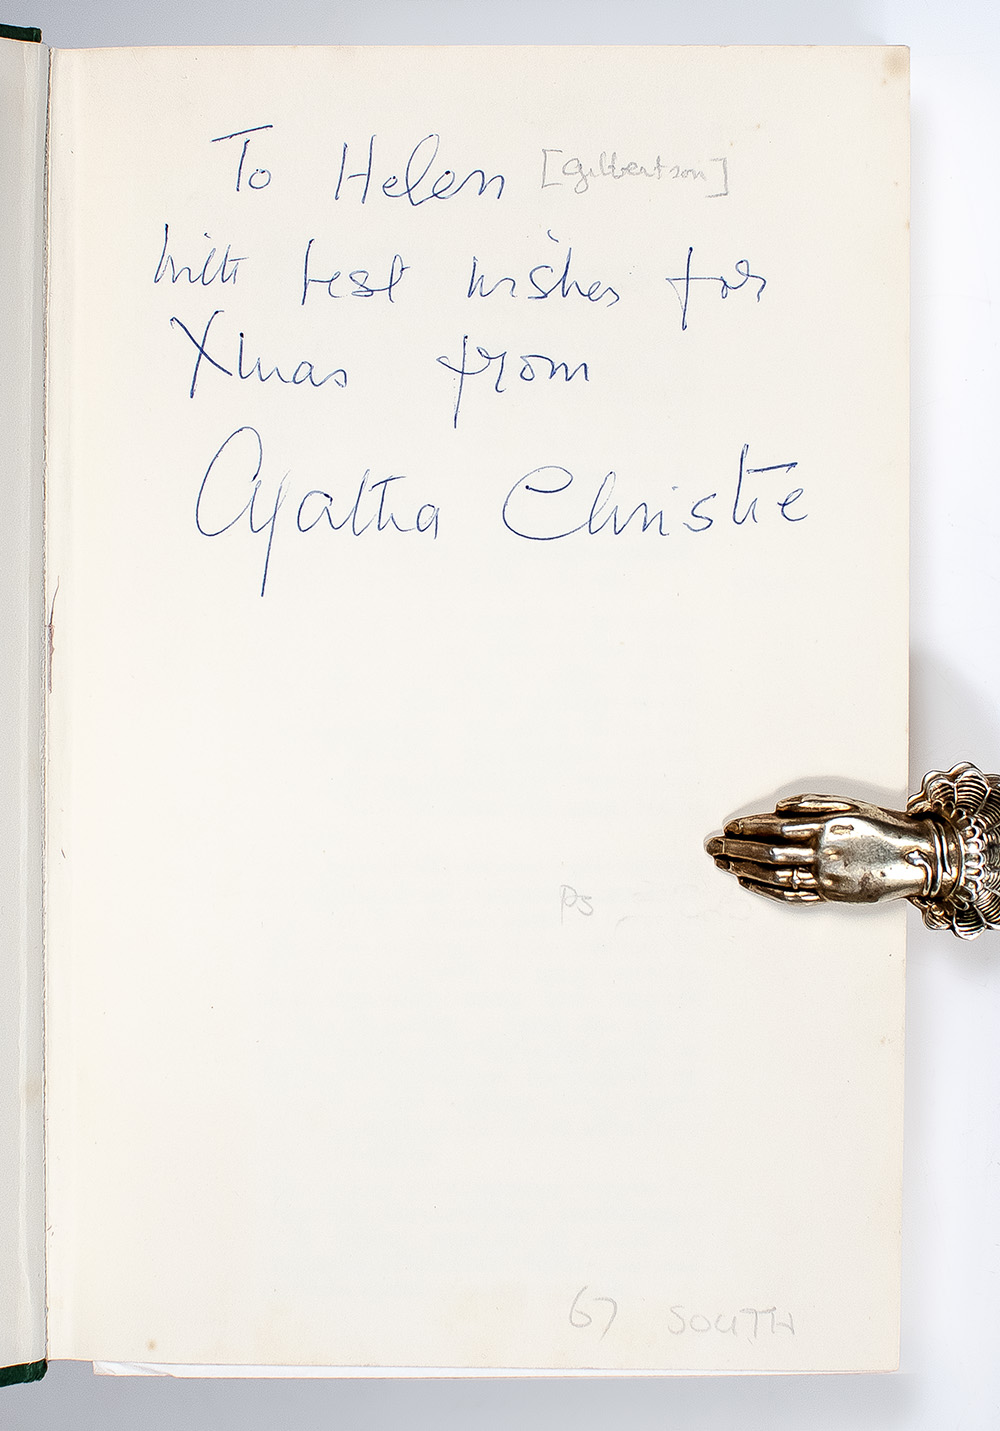 To Helen [Gilbertson]
with best wishes for
Xmas from
Agatha Christie
Ps
67 SOUTH